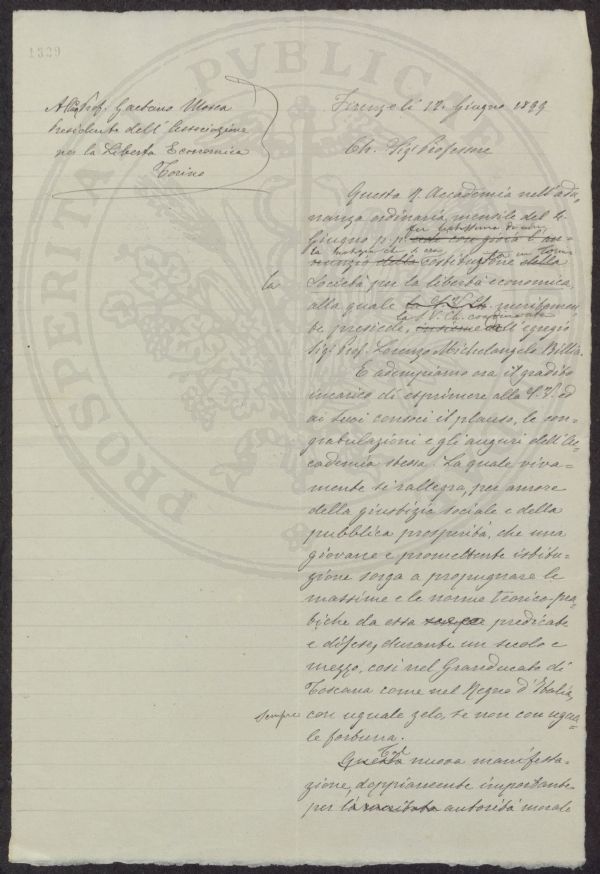 1329
All'Ill. Prof. Gaetano Mosca
Presidente dell'Associazione
per la Libertà Economica
Torino
Firenze li 12 Giugno 1899
Ch. Sig. Professore
Questa R. Accademia nell'adu-
nanza ordinaria mensile del 4
Giugno p. p.
costituzione della
la
Società per la libertà economica,
alla quale meritamen-
la S. V. Ch.
te presiede, dell'egregio
Sig. Prof. Lorenzo Michelangelo Billia.
E adempiamo ora il gradito
incarico di esprimere alla S. V. ed
ai suoi consoci il plauso, le con-
gratulazioni e gli auguri dell'Ac-
cademia stessa. La quale viva-
mente si rallegra, per amore
della giustizia sociale e della
pubblica prosperità, che una
giovane e promettente istitu-
zione sorga a propugnare le
massime e le norme teorico-pra-
tiche da essa predicate
e difese, durante un secolo e
mezzo, così nel Granducato di
Toscana come nel Regno d'Italia,
sempre
con uguale zelo, se non con ugua-
le fortuna.
Questa nuova manifesta-
zione, doppiamente importante
per la autorità morale
PROSPERITA PVBLICAE